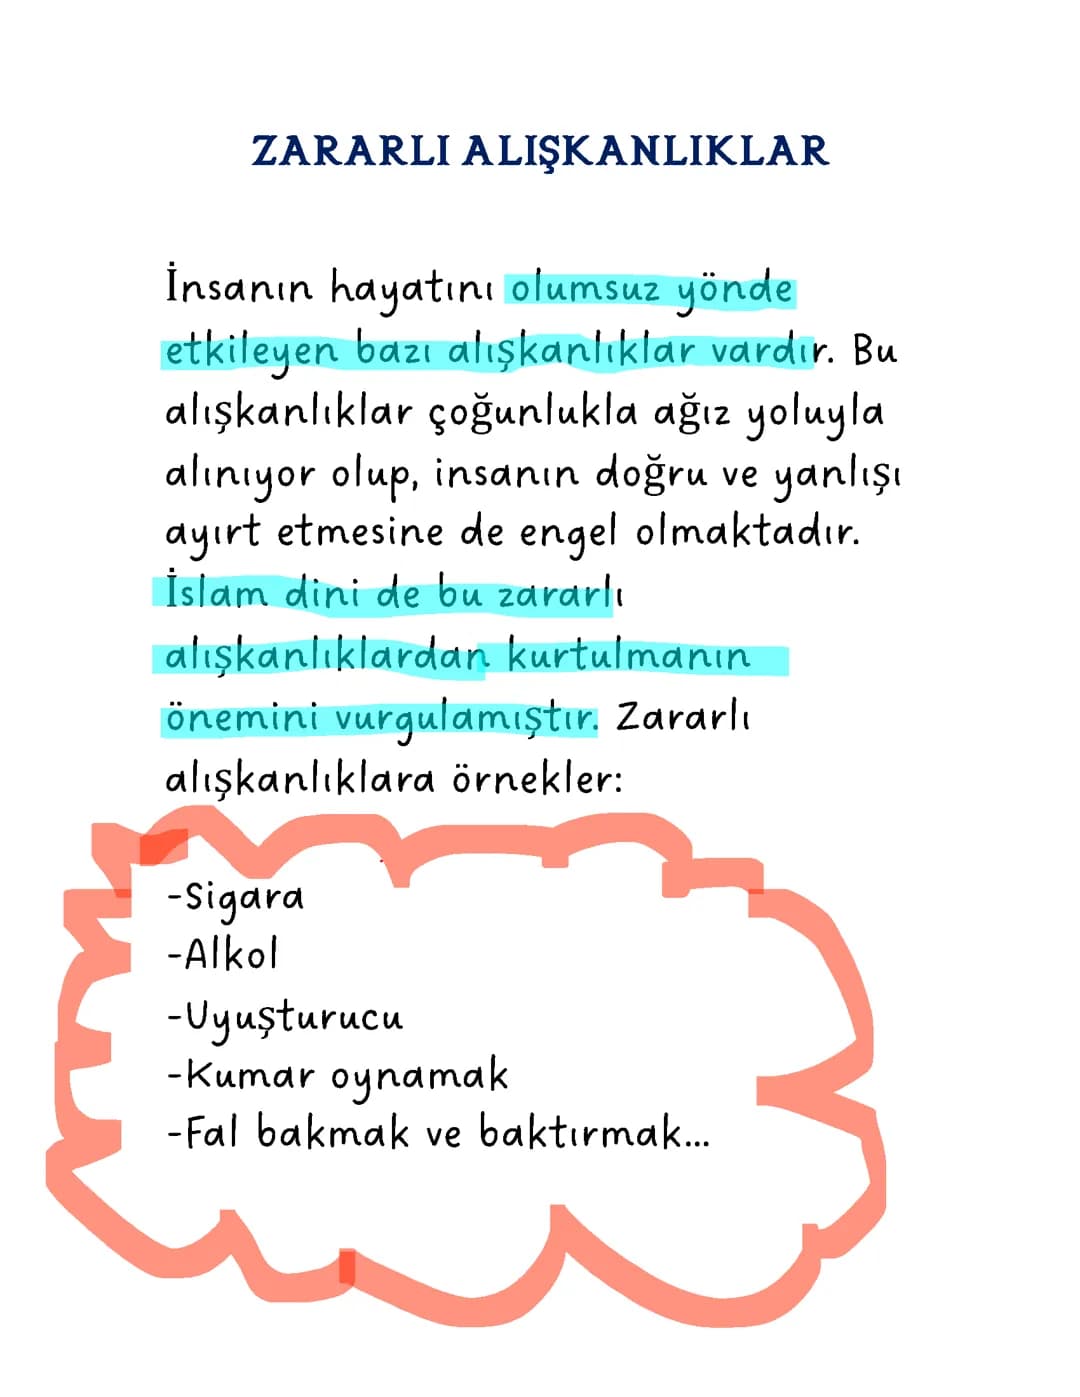 ZARARLI ALIŞKANLIKLAR
İnsanın hayatını olumsuz yönde
etkileyen bazı alışkanlıklar vardır. Bu
alışkanlıklar çoğunlukla ağız yoluyla
alınıyor olup, insanın doğru ve yanlışı
ayırt etmesine de engel olmaktadır.
İslam dini de bu zararlı
alışkanlıklardan kurtulmanın
önemini vurgulamıştır. Zararlı
alışkanlıklara örnekler:
-Sigara
-Alkol
-Uyuşturucu
-Kumar oynamak
-Fal bakmak ve baktırmak...